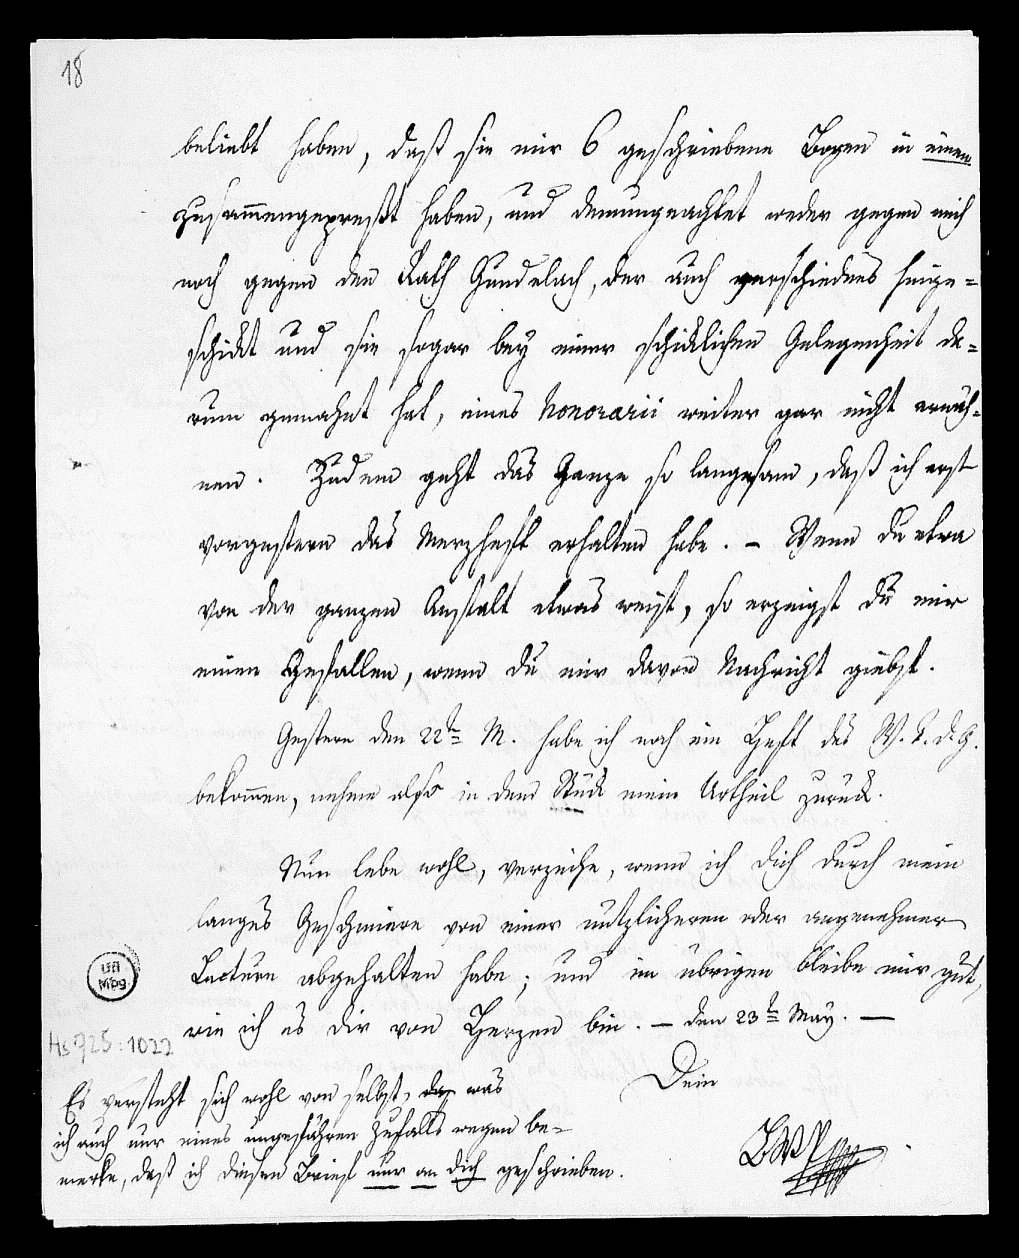 18
beliebt haben, daß sie mir 6 geschriebene Bogen in einen
zusam̅engepreßt haben, und demungeachtet weder gegen mich
noch gegen den Rath Gundelach, der auch verschiednes hinge=
schickt und sie sogar bey einer schicklichen Gelegenheit da=
rum gemahnt hat, eines honorarii weiter gar nicht erwäh=
nen. Zudem geht das Ganze so langsam, daß ich erst
vorgestern das Merzheft erhalten habe. – Wenn du etwa
von der ganzen Anstalt etwas weist, so erzeigst du mir
einen Gefallen, wenn du mir davon Nachricht giebst.
Gestern den 22t M. habe ich noch ein Heft des
bekom̅en, nehme also in dem Stück mein Urtheil zurück.
Nun lebe wohl, verzeihe, wenn ich dich durch mein
langes Geschmiere von einer nützlicheren oder angenehmer
Lecture abgehalten habe; und im übrigen bleibe mir gut,
wie ich es dir von Herzen bin. – den 23t May. –
Dein
Es versteht sich wohl von selbst, was
ich auch nur eines ungefähren Zufalls wegen be=
merke, daß ich diesen Brief nur an dich geschrieben.
UB
Mbg.
Hs 725:1022